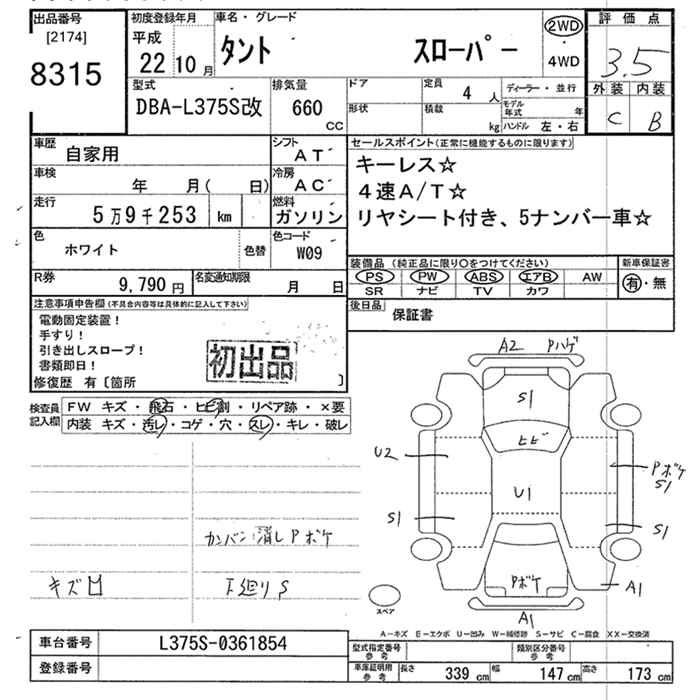 出品番号 初度登録年月 車名・グレード 2WD 評価点
[2174] 平成 タント スローパー ・ 3.5
8315 22 10月 4WD
型式 排気量 ドア 定員 4人 ディーラー・並行 外装 内装
DBA-L375S改 660 cc 形状 積載 kg モデル年式 年 C B
ハンドル 左・右
車歴 自家用 シフト AT セールスポイント(正常に機能するものに限ります)
車検 年 月( 日) 冷房 AC キーレス☆
走行 5万9千253 km 燃料 ガソリン 4速A/T☆
リヤシート付き、5ナンバー車☆
色 ホワイト 色替 色コード W09
装備品(純正品に限り○をつけてください) 新車保証書
R券 9,790円 名変通知期限 月 日 PS PW ABS エアB AW 有・無
SR ナビ TV カワ
注意事項申告欄(不具合内容等は具体的に記入して下さい) 後日品 保証書
電動固定装置!
手すり!
引き出しスロープ!
書類即日!
初出品
修復歴 有〔箇所 〕
検査員記入欄 FW キズ・飛石・ヒビ割・リペア跡・×要
内装 キズ・汚レ・コゲ・穴・スレ・キレ・破レ
A2 Pハゲ
S1
ヒビ
U2 U1 Pボケ
S1
S1 S1
カンバン消しPボケ
キズ 下廻りS Pボケ A1
スペア A1
A-キズ E-エクボ U-凹み W-補修跡 S-サビ C-腐食 XX-交換済
車台番号 L375S-0361854 型式指定番号参考 類別区分番号参考
登録番号 車庫証明用参考 長さ 339cm 幅 147cm 高さ 173cm